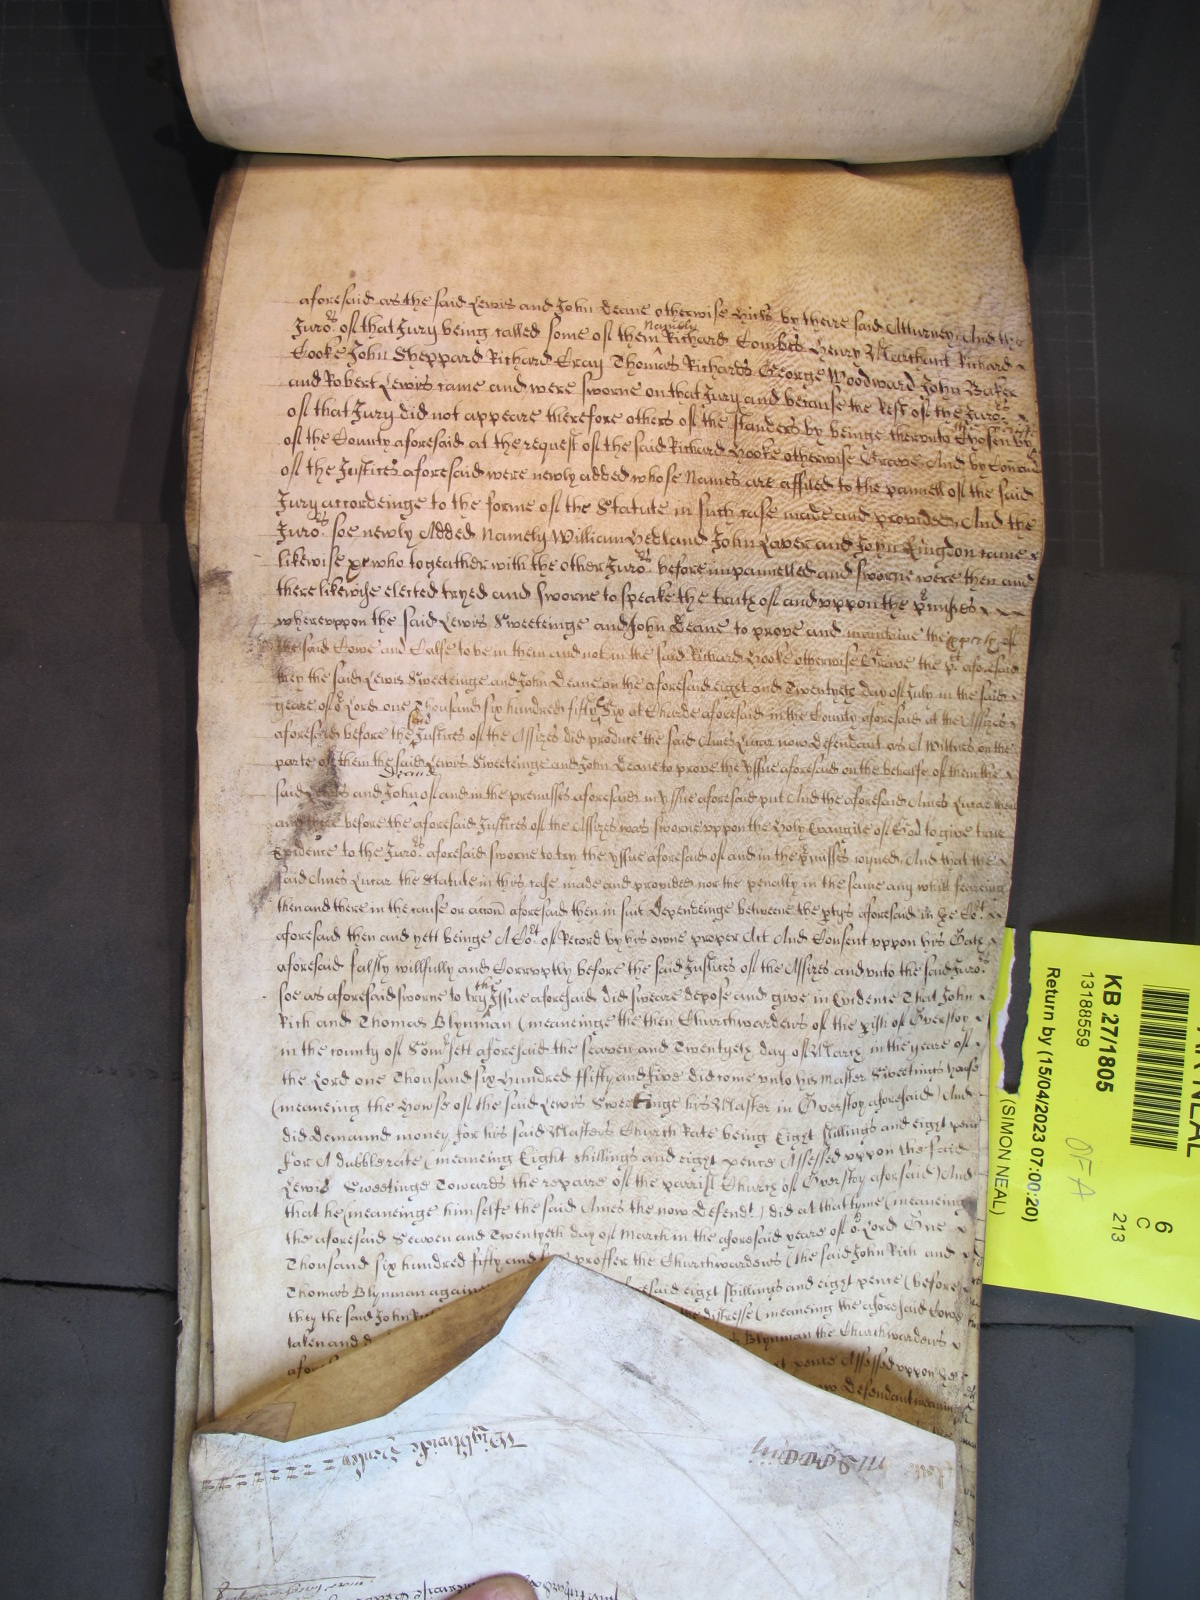 aforesaid as the said Lewis and John Deane otherwise Hicks by theire said Atturney And the
Juro.rs of that Jury being called some of them Namely Richard Combes Henry Marchant Richard
Cooke John Sheppard Richard Cray Thomas Richards George Woodward John Baker
and Robert Lewis came and were sworne on that Jury and because the Rest of the Juro.rs
of that Jury did not appeare therefore others of the standers by beinge therunto Chosen by
of the County aforesaid at the request of the said Richard Hooke otherwise Grave And by Comand
of the Justices aforesaid were newly added whose Names are affiled to the pannell of the said
Jury accordeinge to the forme of the Statute in such case made and provided And the
Juro.rs soe newly Added Namely William Yedland John Laver and John Lingdon came
likewise who togeather with the other Juro.rs before impannelled and sworne were then and
there likewise elected tryed and sworne to speake the truth of and uppon the p'misses
whereuppon the said Lewis Sweeteinge and John Deane to prove and mainteine the
the said Cowe and Calfe to be in them and not in the said Richard Hooke otherwise Grave the aforesaid
they the said Lewis Sweeteinge and John Deane on the aforesaid eight and Twentyeth day of July in the said
yeare of o.r Lord one Thousand six hundred fifty Six at Charde aforesaid in the County aforesaid at the Assizes
aforesaid before the said Justices of the Assizes did produce the said Ames Lucar now defendant as A Witnes on the
parte of them the said Lewis Sweeteinge and John Deane to prove the yssue aforesaid on the behalfe of them the
said Lewis and John Deane of and in the premisses aforesaid in yssue aforesaid put And the aforesaid Ames Lucar then
and there before the aforesaid Justices of the Assizes was sworne uppon the Holy Evangile of God to give true
Evidence to the Juro.rs aforesaid sworne to try the yssue aforesaid of and in the p'misses ioyned And that the
said Ames Lucar the Statute in this case made and provided nor the penalty in the same any whitt feareing
then and there in the cause or accon aforesaid then in suit Dependeinge betweene the p'tyes aforesaid in the Co.rt
aforesaid then and yett beinge A Co.rt of Record by his owne proper Act And Consent uppon his Oath
aforesaid falsly willfully and Corruptly before the said Justices of the Assizes and unto the said Juro.rs
soe as aforesaid sworne to try the Issue aforesaid did sweare depose and give in Evidence That John
Rich and Thomas Blynman (meaneinge the then Churchwardens of the p'ish of Overstoy
in the county of Som'sett aforesaid the seaven and Twentyeth day of March in the yeare of
the Lord one Thousand six Hundred ffifty and five did come unto his Master Sweetings house
(meaneing the Howse of the said Lewis Sweetinge his Master in Overstoy aforesaid) And
did demaund money for his said Masters Church Rate being Eight shillings and eight pence
for A dubble rate (meaneing Eight shillings and eight pence Assessed uppon the said
Lewis Sweetinge Towards the repaire of the parrish Church of Overstoy aforsaid) And
that he (meaneinge himselfe the said Ames the now Defend.t) did at that tyme (meaneing
the aforesaid Seaven and Twentyeth day of March in the aforesaid yeare of o.r Lord One
Thousand six hundred fifty and proffer the Churchwardens (the said John Rich and
Thomas Blynman againe esaid eight shillings and eight pence (before
they the said John Ric the distresse (meaneing the aforesaid Cowe
taken and d Blynman the Churchwardens
afor pence Assessed uppon
Defendant meaning
Wightwicke Henley
KB 27/1805
13188559
Return by (15/04/2023 07:00:20)
(SIMON NEAL)
OFA
6
C
213